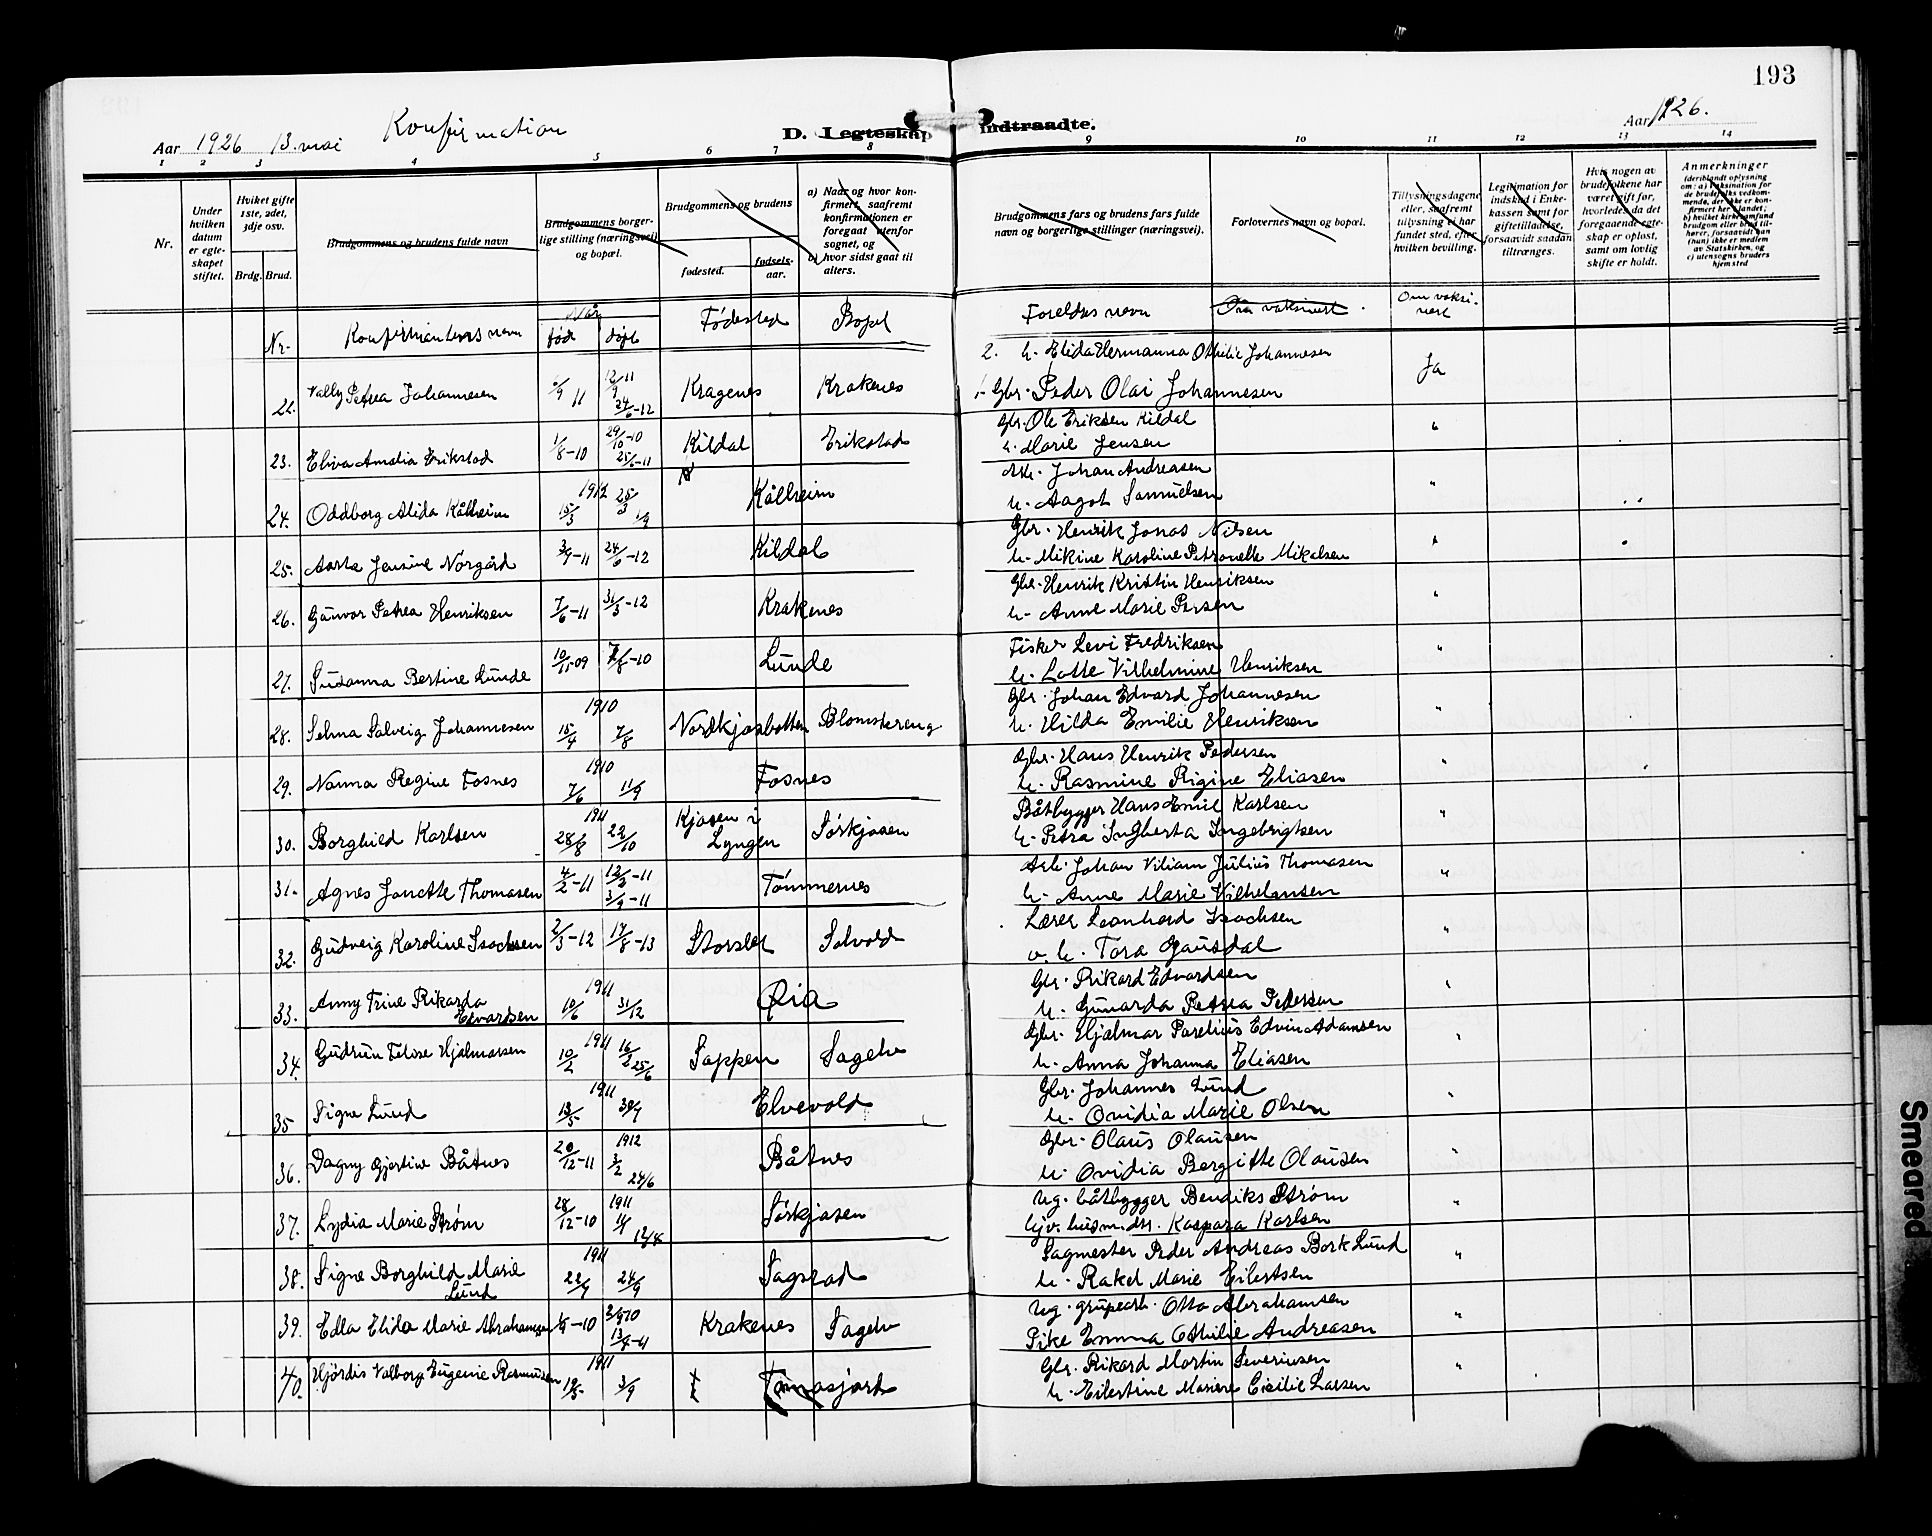 193
Aar 1926 13. mai Konfirmation
D. Legteskap indtraadte.
Aar 1926.
1 2 3 4 5 6 7 8 9 10 11 12 13 14
Nr.
Under hvilken datum er egteskapet stiftet.
Hvilket gifte 1ste, 2det, 3dje osv.
Brdg. Brud.
Brudgommens og brudens fulde navn
Brudgommens borgerlige stilling (næringsvei) og bopæl.
Brudgommens og brudens
fødested. fødselsaar.
a) Naar og hvor konfirmert, saafremt konfirmationen er foregaat utenfor sognet, og
b) hvor sidst gaat til alters.
Brudgommens fars og brudens fars fulde navn og borgerlige stillinger (næringsvei).
Forlovernes navn og bopæl.
Tillysningsdagene eller, saafremt tillysning ei har fundet sted, efter hvilken bevilling.
Legitimation for indskud i Enkekassen samt for giftetilladelse, forsaavidt saadan tiltrænges.
Hvis nogen av brudefolkene har været gift før, hvorledes da det foregaaende egteskap er opløst, samt om lovlig skifte er holdt.
Anmerkninger (deriblandt oplysning om: a) vaksination for de brudefolks vedkommende, der ikke er konfirmert her i landet; b) hvilket kirkesamfund brudgom eller brud tilhører, forsaavidt han (hun) ikke er medlem av Statskirken, og c) utensogns bruders hjemsted
Nr. Konfirmantens navn Når født døpt Fødested Bopel Foreldres navn Om vaksinert Om vaksinert
22. Vally Petrea Johannesen 9 11 12/9 11 24/6-12 Kragenes Krakenes 2. h. Elida Hermanna Othilie Johannesen
1. Gbr. Peder Olai Johannesen Ja
23. Eliva Amalia Erikstad 1/8-10 29/10-10 25/6-11 Kildal Erikstad Gbr. Ole Eriksen Kildal
h. Marie Jensen "
24. Oddborg Alida Kålheim 1912 15/3 25/3 1/9 Kålheim Arb. Johan Andreasen
h. Aagot Samuelsen "
25. Aasta Jensine Nörgård 3/9-11 24/6-12 Kildal Gbr. Henrik Jonas Nilsen
h. Mikine Karoline Petronelle Mikalsen "
26. Gunvor Petrea Henriksen 7/6-11 31/3-12 Krakenes Gbr. Henrik Kristin Henriksen
h. Anne Marie Persen "
27. Susanna Bertine Lunde 10/11-09 7/8-10 Lunde Fisker Levi Fredriksen
h. Lotte Vilhelmine Henriksen "
28. Selma Solveig Johannesen 1910 15/4 7/8 Nordkjosbotten Blomstereng Gbr. Johan Edvard Johannesen
h. Hilda Emilie Henriksen "
29. Nanna Regine Fosnes 1910 7/6 11/9 Fosnes Gbr. Hans Henrik Pedersen
h. Rasmine Rigine Eliasen "
30. Borghild Karlsen 1911 28/8 22/10 Kjosen i Lyngen Sørkjosen Båtbygger Hans Emil Karlsen
h. Petra Ingberta Ingebrigtsen "
31. Agnes Janette Thomasen 4/2-11 12/2-11 3/9-11 Tømmernes Arb. Johan Viliam Julius Thomasen
h. Anne Marie Vilhelmsen "
32. Gudveig Karoline Isachsen 2/3-12 17/8-13 Storslet Solvold Lærer Leonhard Isachsen
o. h. Tora Gausdal "
33. Anny Trine Rikarda Edvardsen 1911 10/6 31/12 Øia Gbr. Rikard Edvardsen
h. Gunarda Petrea Pedersen "
34. Gudrun Felixe Hjalmarsen 1911 10/2 16/2 25/6 Sappen Sagelv Gbr. Hjalmar Parelius Edvin Adamsen
h. Anna Johanna Eliasen "
35 Signe Lund 1911 13/5 30/7 Elvevold Gbr. Johannes Lund
h. Ovidia Marie Olsen "
36. Dagny Gjertine Båtnes 20/12-11 1912 3/2 24/6 Båtnes Gbr. Olaus Olausen
h. Ovidia Bergitte Olausen "
37. Lydia Marie Strøm 28/12-10 1911 1/1 12/8 Sørkjosen Ug. båtbygger Bendiks Strøm
Gjv. husm.dtr. Kaspara Karlsen "
38. Signe Borghild Marie Lund 1911 22/7 24/9 Sagstad Sagmester Peder Andreas Bork Lund
h. Rakel Marie Eilertsen "
39. Edla Elida Marie Abrahamsen 1/9-10 Krakenes Sagelv Ug. grupearb. Otto Abrahamsen
Pike Emma Othilie Andreasen "
40. Hjördis Valborg Eugenie Rasmussen 1911 19/5 3/9 Gbr. Rikard Martin Severinsen
h. Eilertine Mariere Cicilie Larsen "
Smeared